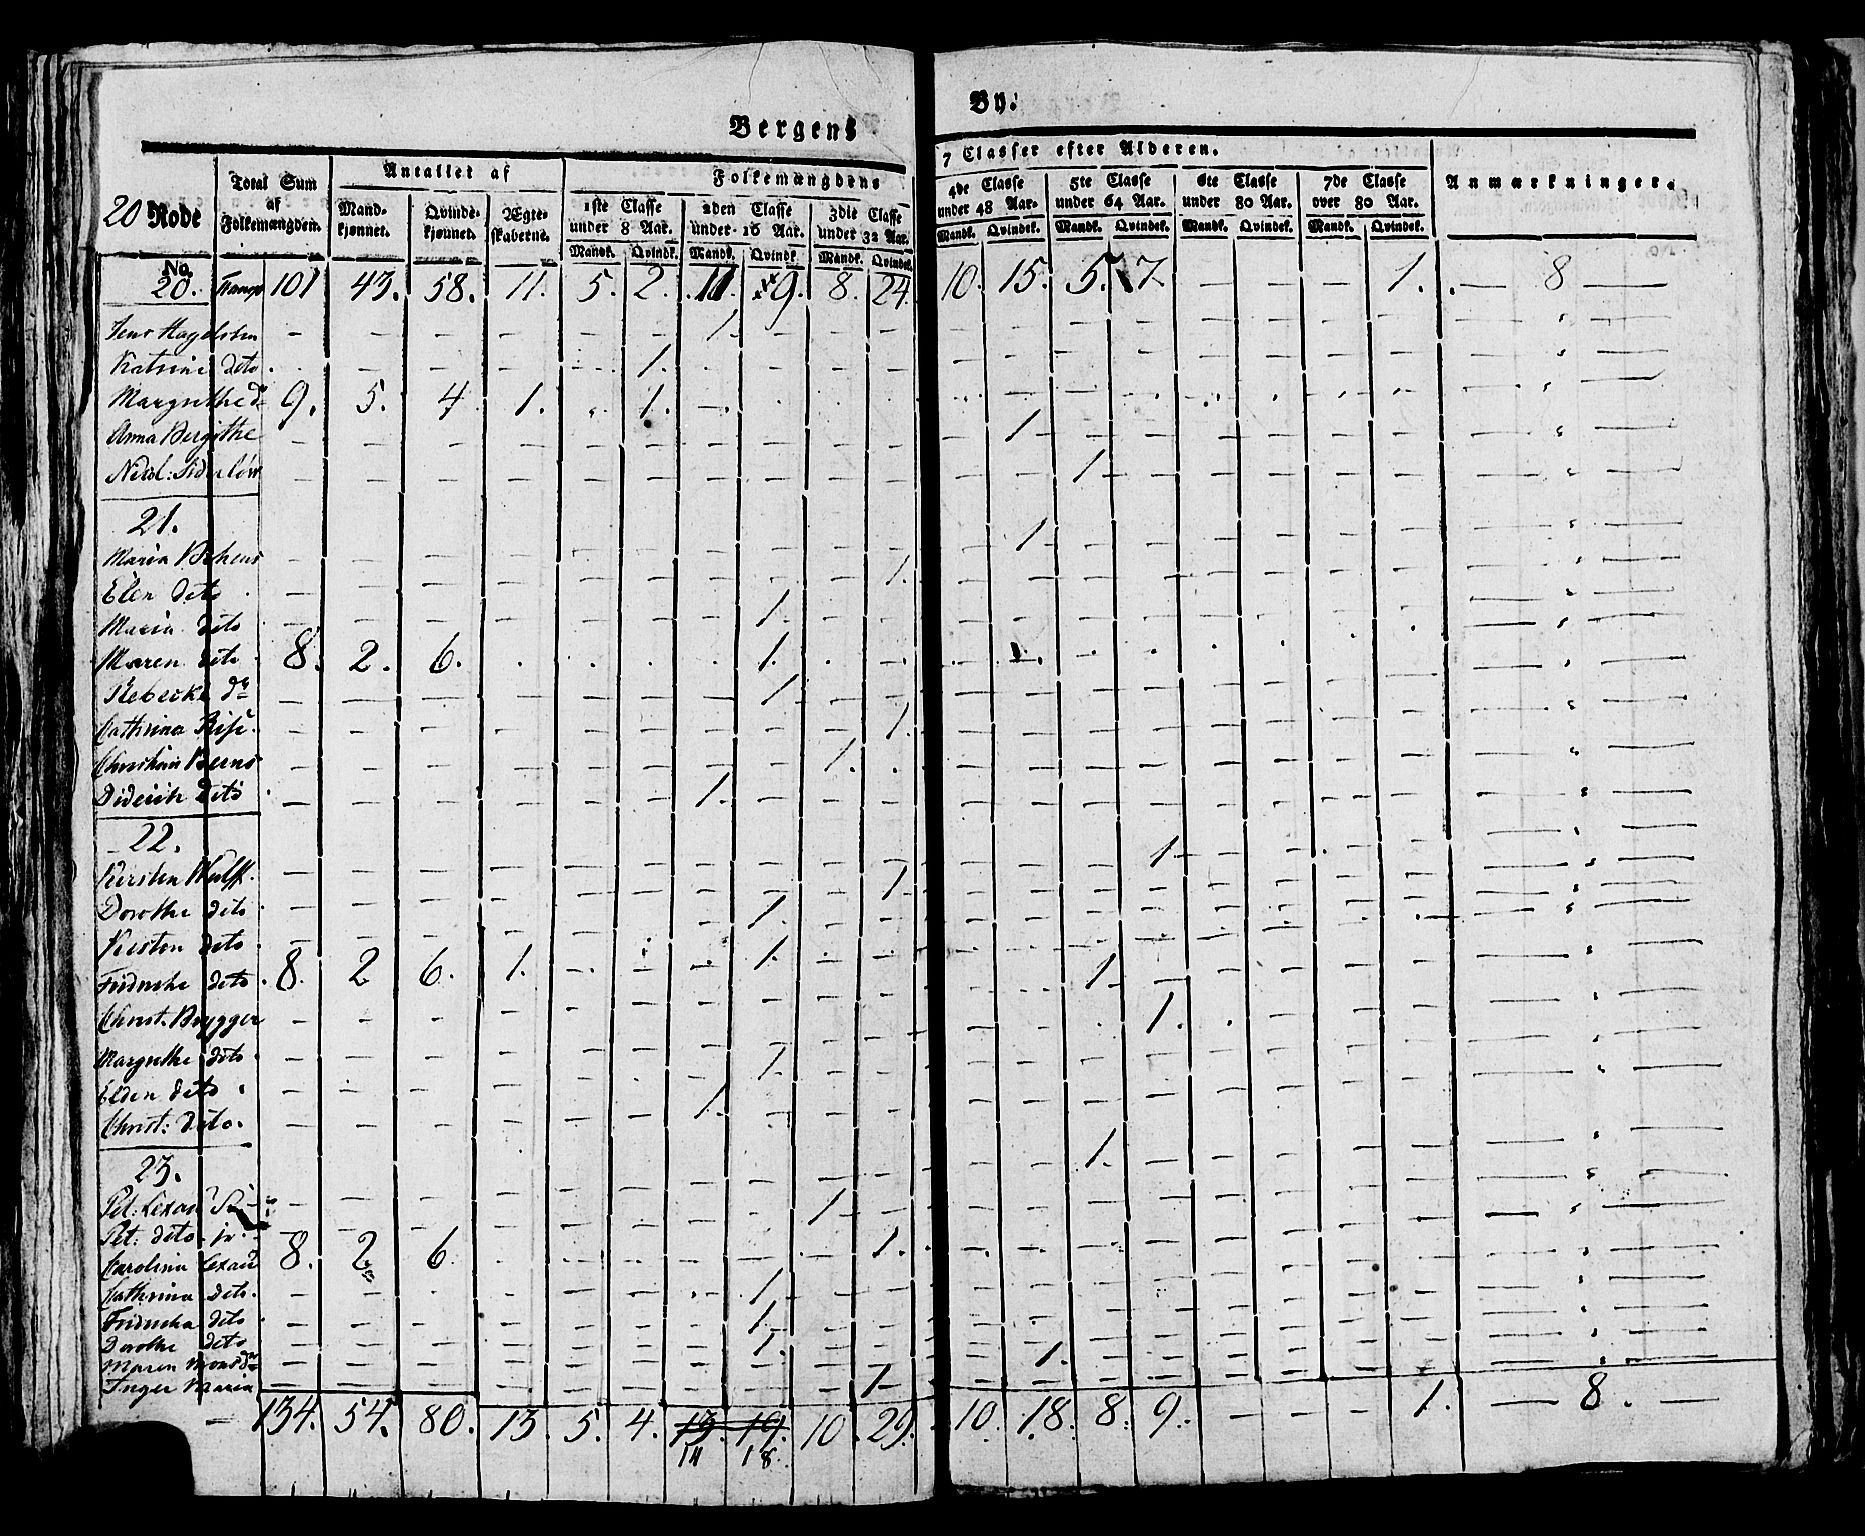 Bergens By:
20 Rode
Total Sum af Folkemængden.
Antallet af
Mand-kjønnet. Qvinde-kjønnet. Ægte-skaberne.
Folkemængdens 7 Classer efter Alderen.
1ste Classe under 8 Aar. 2den Classe under 16 Aar. 3die Classe under 32 Aar. 4de Classe under 48 Aar. 5te Classe under 64 Aar. 6te Classe under 80 Aar. 7de Classe over 80 Aar.
Anmærkninger.
Mandk. Qvindek. Mandk. Qvindk. Mandk. Qvindek. Mandk. Qvindek. Mandk. Qvindek. Mandk. Qvindek. Mandk. Qvindek.
No.
20. 101 43. 58. 11. 5. 2. 11. 9. 8. 24. 10. 15. 5. 7 — — — 1. — 8 —
Jens Hagelsten 1.
Katrine dito 1.
Margrethe do 9. 5. 4 1. 1.
Anna Bergithe 1
1
21.
Maria Behrens 1
Elen dito 1.
Maria dito 1.
Maren dito 8. 2. 6. 1.
Rebecka do 1
Cathrina 1.
Christian 1.
Diderich dito 1.
22.
Kirsten Wulff. 1
Dorothe dito 1
Kirsten dito 1.
Fridriche dito 8. 2 6. 1. 1.
Christ. Brygger 1
Margrethe dito 1.
Elden dito 1
Christ: dito. 1
23.
Pet: Lexau 1.
Pet: dito jr. 1
Carolina Lexau 8. 2 6 1.
Cathrina dito. 1
Fridricka dito 1.
Dorothe dito 1.
Maren 1.
Inger Maria 1
134. 54. 80. 13 5. 4. 13. 19. 10 29. 10. 18. 8. 9. — — — 1. — 8. —
14 18.